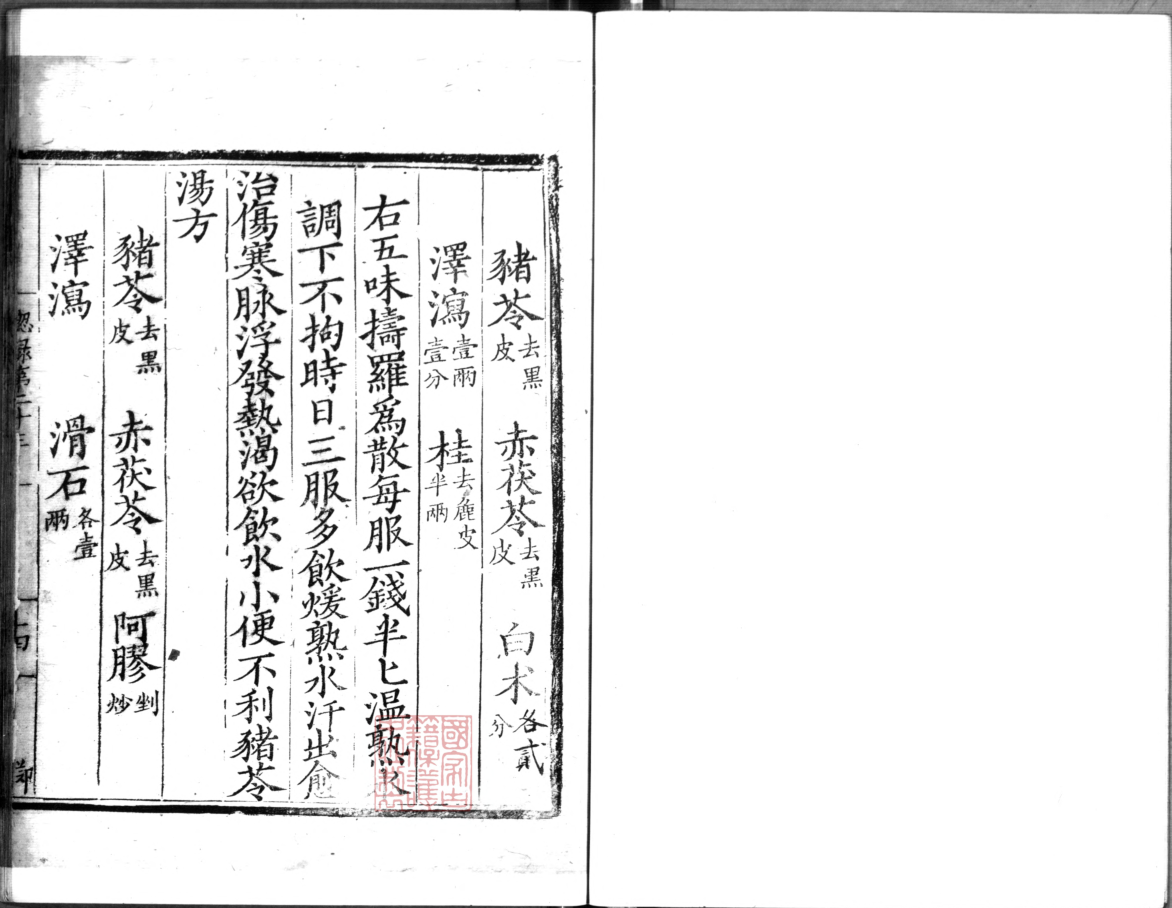 豬苓去黑皮 赤茯苓去黑皮 白术各貳分
澤瀉壹兩壹分 桂去麄皮半兩
右五味擣羅爲散每服一錢半匕温熟水
調下不拘時日三服多飲煖熟水汗出愈
治傷寒脉浮發熱渴欲飲水小便不利豬苓
湯方
豬苓去黑皮 赤茯苓去黑皮 阿膠剉炒
澤瀉 滑石各壹兩